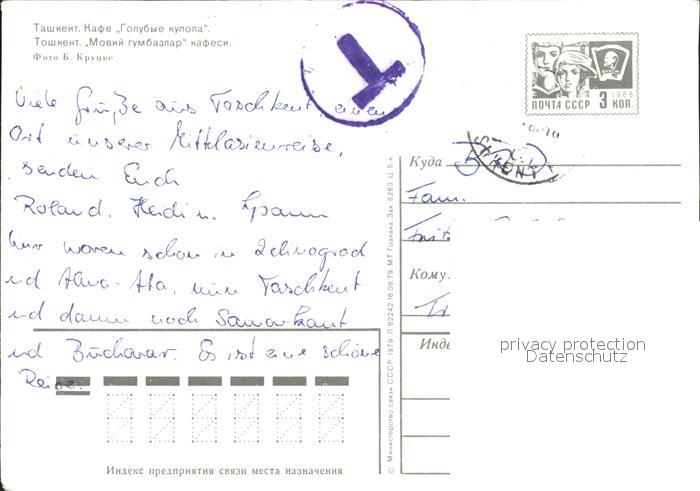 Ташкент. Кафе „Голубые купола".
Тошкент. „Мовий гумбазлар" кафеси.
Фото Б. Круцко
T
1966
ПОЧТА СССР 3 КОП.
Viele Grüße aus Taschkent, einen
Ort unserer Mittelasienreise,
senden Euch
Roland, Heidi u.
Wir waren schon in Zelinograd
und Alma-Ata, nun Taschkent
und dann noch Samarkant
und Buchara. Es ist eine schöne
Reise.
Куда BRD
Fam.
Кому
Инде
privacy protection
Datenschutz
© Министерство связи СССР, 1979. Л 82242 16.08.79. МТ Гознака. Зак. 6263. Ц. 5 к.
Индекс предприятия связи места назначения